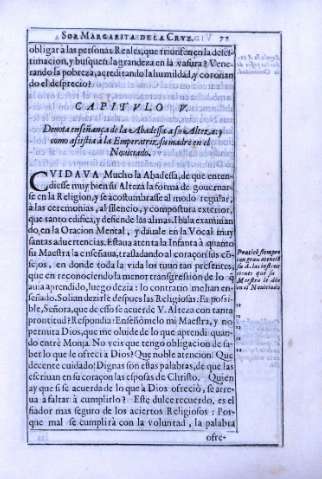 SOR MARGARITA DE LA CRVZ. 77
obligar à las personas Reales, que en la deses-
timacion, y busquen la grandeza en la vasura? Vene-
rando la pobreza, acreditando la humildad, y coronan
do el desprecio?
CAPITVLO V.
Devota enseñança de la Abadessa a su Alteza: y
como assistia à la Emperatriz, su madre en el
Noviciado.
CVIDAVA Mucho la Abadessa, de que enten-
diesse muy bien su Alteza la forma de gouernar
se en la Religion, y se acostumbrasse al modo regular,
à las ceremonias, al silencio, y compostura exterior,
que tanto edifica, y defiende las almas. Ibala examinan
do, en la Oracion Mental, y dauale en la Vocal muy
santas aduertencias. Estaua atenta la Infanta à quanto
su Maestra la enseñaua, trasladando al coraçon sus cõ-
sejos, en donde toda la vida los tuuo tan presentes,
que en reconociendo la menor transgression de lo q̃
auia aprendido, luego dezia: lo contrario me han en-
señado. Solian dezirle despues las Religiosas: Es possi-
ble, Señora, que de esso se acuerde V. Alteza con tanta
prontitud? Respondia: Enseñòmelo mi Maestra, y no
permita Dios, que me oluide de lo que aprendi quan
do entrè Monja. No veis que tengo obligacion de sa-
ber lo que ofreci a Dios? Que noble atencion! Que
decente cuidado! Dignas son estas palabras, de que las
escriuan en su coraçon las esposas de Christo. Quien
ay que si se acuerda de lo que a Dios ofreciò, se atre-
ua à faltar à cumplirlo? Este dulce recuerdo, es el
fiador mas seguro de los aciertos Religiosos: Por-
que mal se cumplirà con la voluntad, la palabra
ofre-
Practicò siempre
con gran
que su
Maestra le diò
en el Noviciado